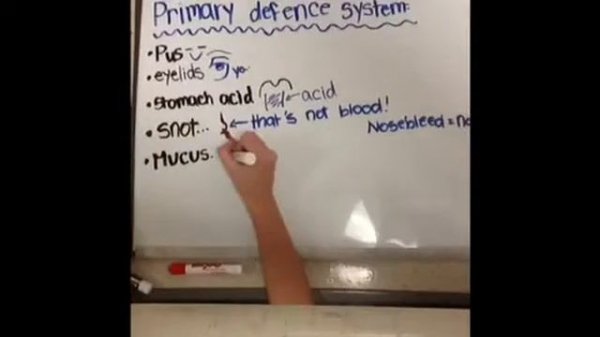 Primary defence system:
• Pus
• eyelids
• Stomach acid ← acid
• Snot... ← that's not blood!
Nosebleed =
• Mucus.